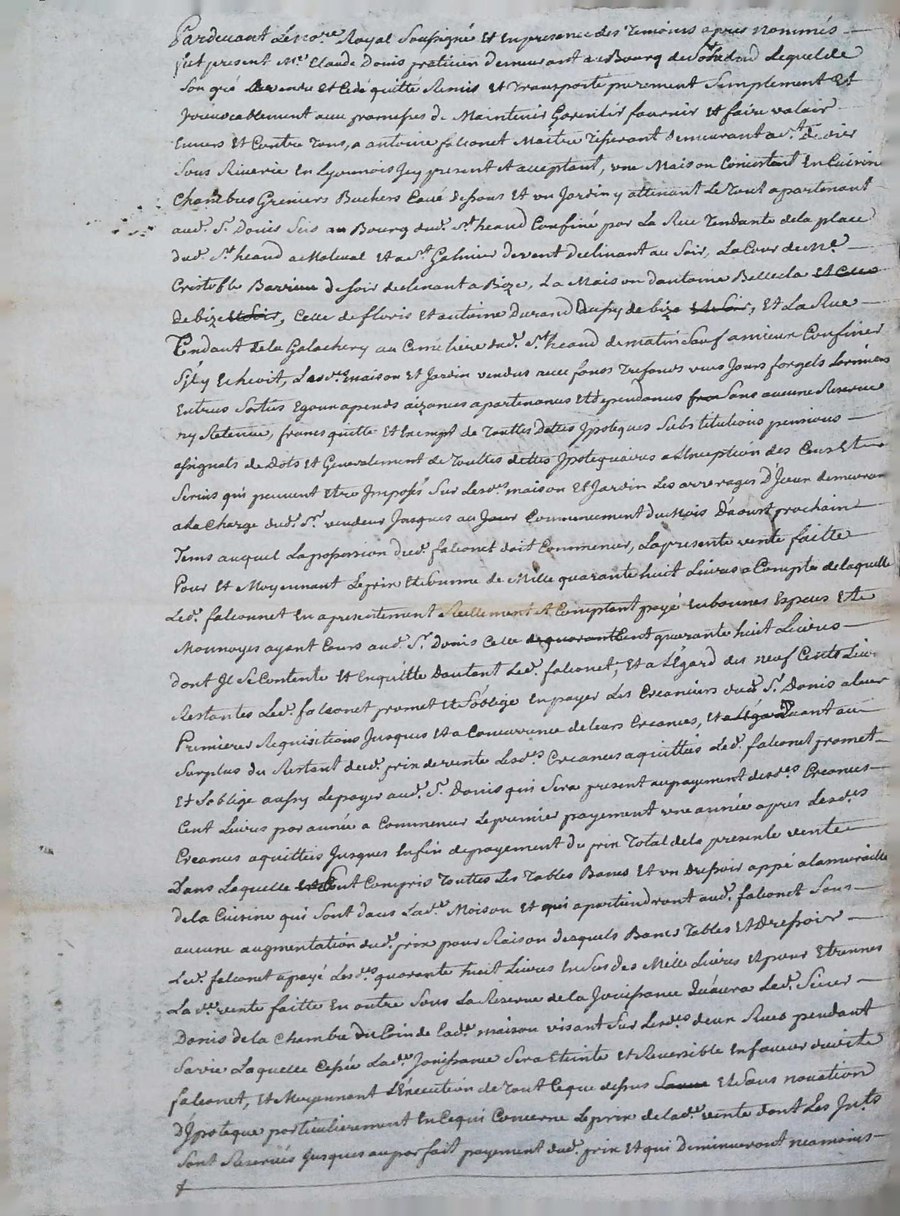 Pardevant Le no.re Royal Soussigné Et En presence des Temoins apres nommés
fut present M.e Claude Donis praticien demeurant au Bourg de Lequel de
Son gré a vendu et Cédé quitté Remis et Transporté purement Simplement Et
Jrrevocablement avec promesses de Maintenir Garentir fournir et faire valoir
Envers Et Contre Tous, a antoine falconet Maitre Tisserant demeurant a S.t Didier
Sous Riverie En Lyonnois Jcy present et acceptant, une Maison Concistant En Cuisine
Chambres Greniers Buchers Cave dessous Et un Jardin y attenant Le tout apartenant
aud. S.r Donis Sis au Bourg dud. S.t heand Confiné par La Rue Tendante de la place
dud. S.t heand a Moleval Et a S.t Galmier devent declinant au Soir, La Cour de M.e
Cristofle Barrieu de soir declinant a Bize, La Maison dantoine Belleda
de bize, Celle de floris Et antoine Durand aussy de bize, Et La Rue
Tendant de la Galachery au Cimetière dud. S.t heand de matin Sauf amieux Confiner
S'il y Echeoit, Lesd. Maison Et Jardin vendus avec fonds Trefonds vues Jours forgets Larmiers
Entrees Sorties Egouts apends aizances apartenances Et dependances Sans aucune Reserve
ny Retenue, francs quitte Et Exempt de Touttes Dettes Jpoteques Substitutions pensions
assignats de Dots Et Generalement de Touttes dettes Jpotequaires a L'exception des Cens Et
Servis qui peuvent Etre Jmposés Sur Lesd. maison Et Jardin Les arrerages D'Jceux demeurant
a la Charge dud. S.r vendeur Jusques au Jour Commencement du Mois Daoust prochain
Tems auquel La possession dud. falconet doit Commencer, La presente vente faitte
Pour Et Moyennant Le prix Et Somme de Mille quarante huit Livres a Compte de laquelle
Led. falconnet En a presentement Reellement Et Comptant payé En bonnes Especes Et
Monnoyes ayant Cours aud. S.r Donis Celle de Cent quarante huit Livres
dont Jl Se Contente Et En quitte Dautant Led. falconet, Et a L'égard des neuf Cents Livres
Restantes Led. falconet promet Et S'oblige En payer Les Creanciers dud. S.r Donis a leur
Premiere Requisitions Jusques Et a Concurrance de leurs Creances, Et quant au
Surplus du Restant dud. prix de vente Lesd. Creances aquittées Led. falconet promet
Et S'oblige aussy Le payer aud. S.r Donis qui Sera present au payement desd. Creances
Cent Livres par année a Commencer Le premier payement une année apres Lesd.
Creances aquittées Jusques Enfin de payement du prix Total de la presente vente
Dans Laquelle Sont Compris Touttes Les Tables Bancs Et un Dressoir appé a la muraille
de la Cuisine qui Sont dans Lad. Maison Et qui apartiendront aud. falconet Sans
aucune augmentation dud. prix pour Raison desquels Bancs Tables Et Dressoir
Led. falconet a payé Lesd. quarante huit Livres En Sus des Mille Livres Et pour Etrennes
La d. vente faitte En outre Sous La Reserve de la Jouissance Qu'aura Led. Sieur
Donis de la Chambre du Coin de lad. maison visant Sur Lesd. deux Rues pendant
Sa vie Laquelle Cessée Lad. Jouissance Sera Eteinte Et Reversible En faveur dud.
falconet, Et Moyennant L'Execution de Tout Ceque dessus Et Sans novation
D'Jpoteque particulierement En Cequi Concerne Le prix de lad. vente dont Les
Sont Reservés Jusques au parfait payement dud. prix Et qui diminueront neamoins